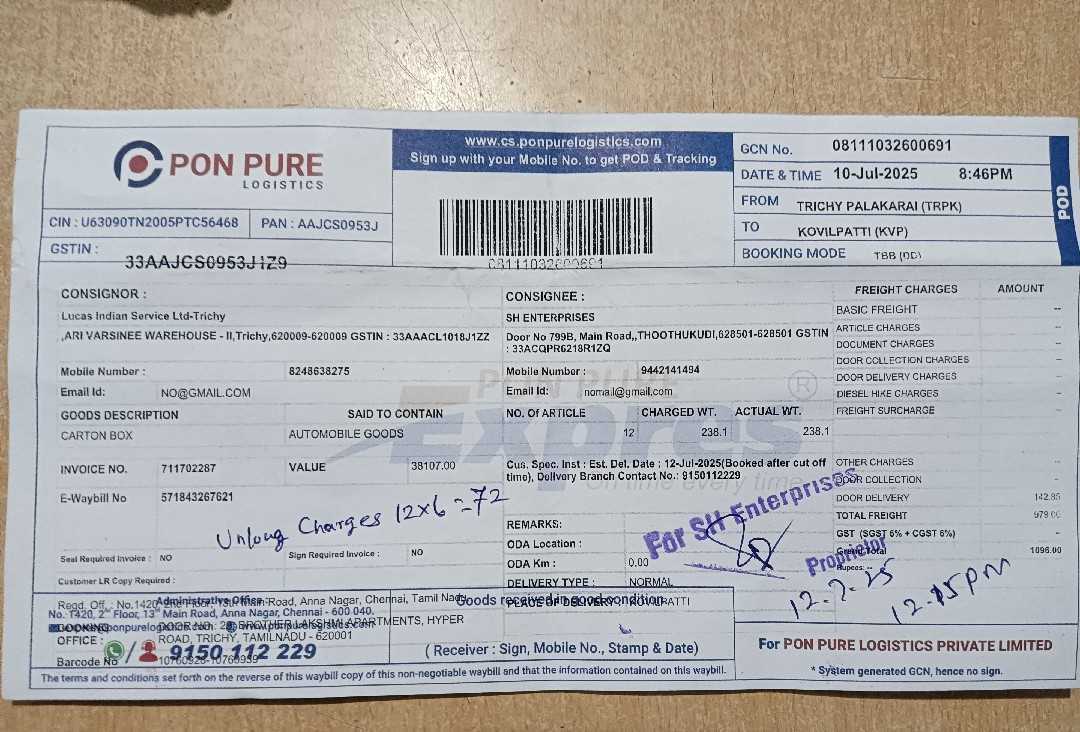 PON PURE
LOGISTICS
CIN : U63090TN2005PTC56468 PAN : AAJCS0953J
GSTIN : 33AAJCS0953J1Z9
www.cs.ponpurelogistics.com
Sign up with your Mobile No. to get POD & Tracking
08111032600691
GCN No. 08111032600691
DATE & TIME 10-Jul-2025 8:46PM
FROM TRICHY PALAKARAI (TRPK)
TO KOVILPATTI (KVP)
BOOKING MODE TBB (DD)
POD
CONSIGNOR :
Lucas Indian Service Ltd-Trichy
,ARI VARSINEE WAREHOUSE - II,Trichy,620009-620009 GSTIN : 33AAACL1018J1ZZ
Mobile Number : 8248638275
Email Id: NO@GMAIL.COM
CONSIGNEE :
SH ENTERPRISES
Door No 799B, Main Road,,THOOTHUKUDI,628501-628501 GSTIN
: 33ACQPR6218R1ZQ
Mobile Number : 9442141494
Email Id: nomail@gmail.com
PON PURE
Express
On time every time
GOODS DESCRIPTION SAID TO CONTAIN NO. OF ARTICLE CHARGED WT. ACTUAL WT.
CARTON BOX AUTOMOBILE GOODS 12 238.1 238.1
INVOICE NO. 711702287 VALUE 38107.00
E-Waybill No 571843267621
Cus. Spec. Inst : Est. Del. Date : 12-Jul-2025(Booked after cut off
time), Delivery Branch Contact No.: 9150112229
Unlong Charges 12x6 = 72
Seal Required Invoice : NO Sign Required Invoice : NO
Customer LR Copy Required :
REMARKS:
ODA Location :
ODA Km : 0.00
DELIVERY TYPE : NORMAL
PLACE OF DELIVERY : KOVILPATTI
FREIGHT CHARGES AMOUNT
BASIC FREIGHT --
ARTICLE CHARGES --
DOCUMENT CHARGES --
DOOR COLLECTION CHARGES --
DOOR DELIVERY CHARGES --
DIESEL HIKE CHARGES --
FREIGHT SURCHARGE --
OTHER CHARGES --
DOOR COLLECTION --
DOOR DELIVERY 142.85
TOTAL FREIGHT 979.00
GST (SGST 6% + CGST 6%) --
Grand Total 1096.00
Rupees: --
For SH Enterprises
Proprietor
12-7-25
12-15PM
Goods received in good condition
(Receiver : Sign, Mobile No., Stamp & Date)
Administrative Office:
Regd. Off, : No.1420, 2nd Floor, 13th Main Road, Anna Nagar, Chennai, Tamil Nadu
No. T420, 2nd Floor, 13th Main Road, Anna Nagar, Chennai - 600 040.
BOOKING OFFICE : DOOR NO : BROTHER LAKSHMI APARTMENTS, HYPER
ROAD, TRICHY, TAMILNADU - 620001
9150 112 229
Barcode No 10760928-10760939
For PON PURE LOGISTICS PRIVATE LIMITED
* System generated GCN, hence no sign.
The terms and conditions set forth on the reverse of this waybill copy of this non-negotiable waybill and that the information contained on this waybill.